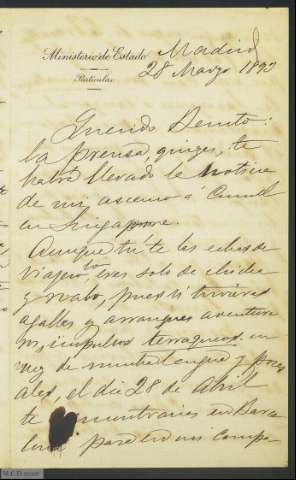 Ministerio de Estado
Particular
Madrid
28 Marzo 1892
Querido Benito:
La prensa, quizás, te
habrá llevado la noticia
de mi ascenso á Cónsul
en Singapore.
Aunque tú te las echas de
viajero eres solo de
y nabo, pues si tuvieras
agallas y arranques aventure
ros, impulsos terraqueos en
vez de mucha lengua y poca
el dia 28 de Abril
te encontrarias en Barce
lona para ser mi compa